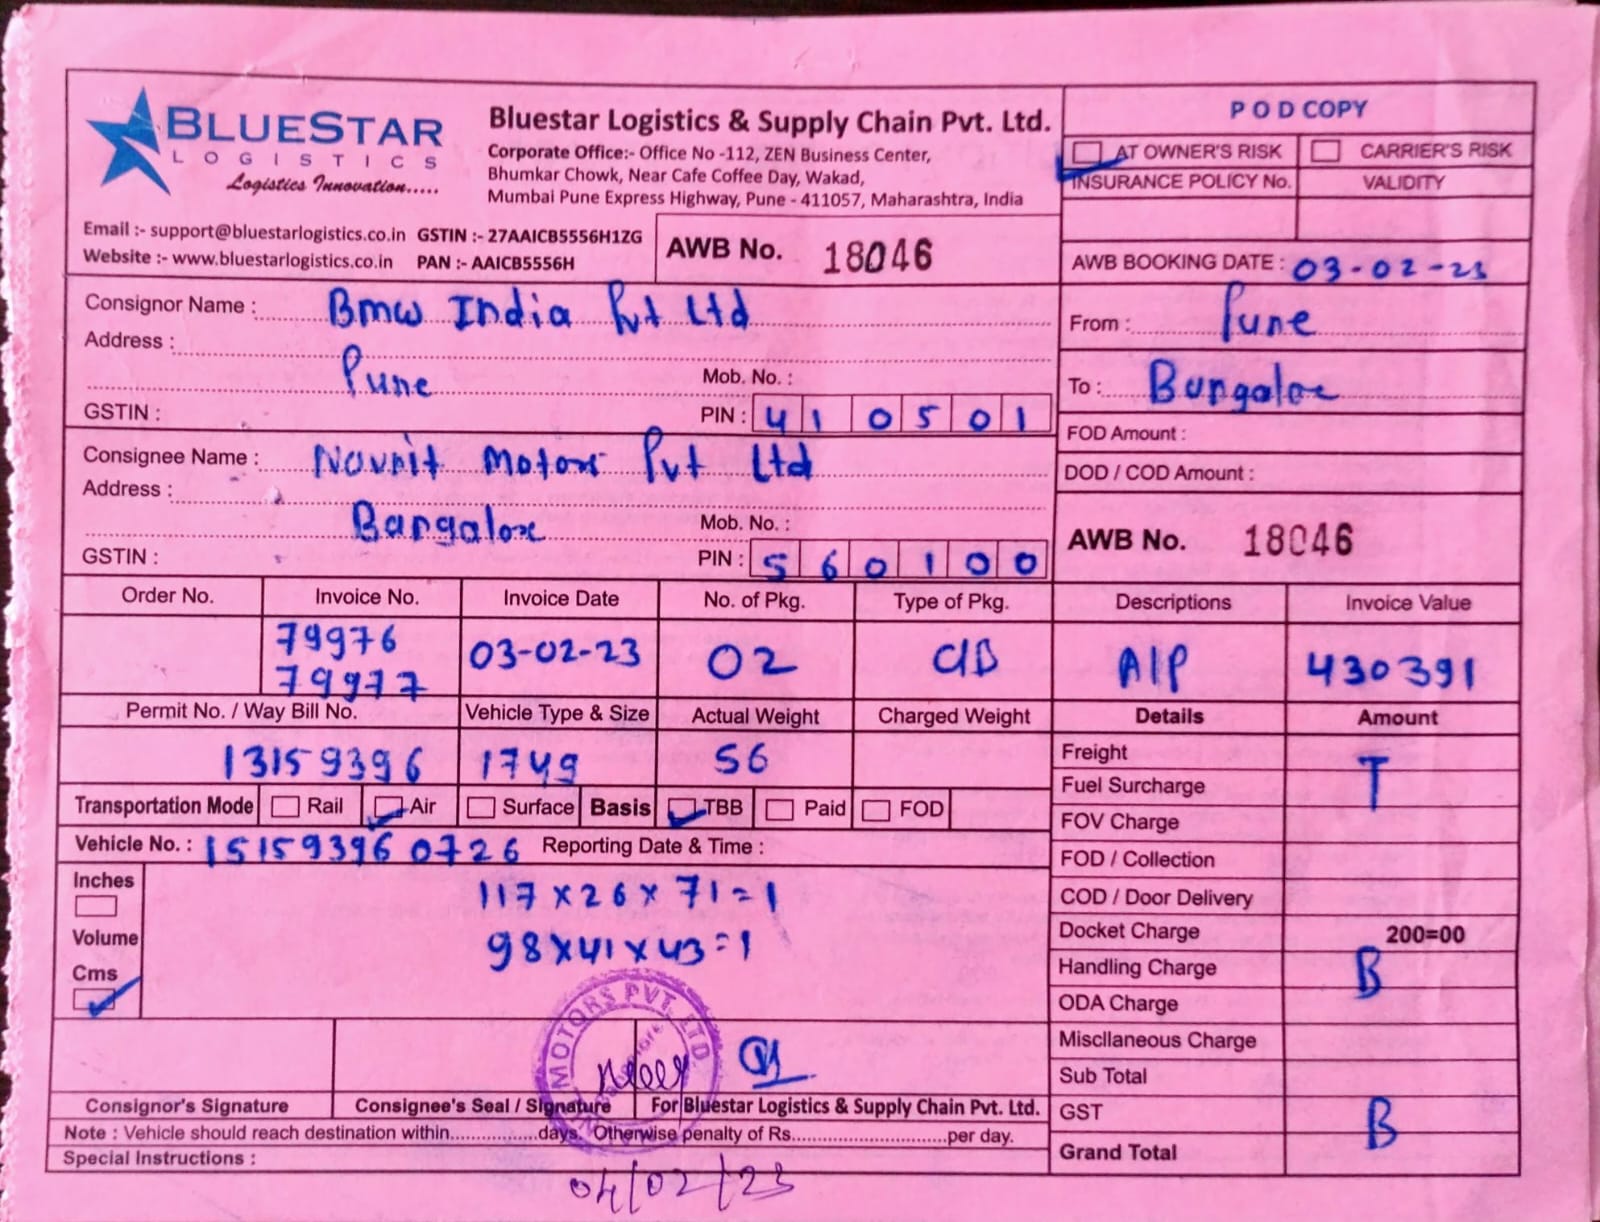 BLUESTAR
LOGISTICS
Logistics Innovation.....
Bluestar Logistics & Supply Chain Pvt. Ltd.
Corporate Office:- Office No -112, ZEN Business Center,
Bhumkar Chowk, Near Cafe Coffee Day, Wakad,
Mumbai Pune Express Highway, Pune - 411057, Maharashtra, India
Email :- support@bluestarlogistics.co.in GSTIN :- 27AAICB5556H1ZG
Website :- www.bluestarlogistics.co.in PAN :- AAICB5556H
AWB No. 18046
POD COPY
AT OWNER'S RISK CARRIER'S RISK
INSURANCE POLICY No. VALIDITY
AWB BOOKING DATE : 03-02-23
From : Pune
To : Bangalore
FOD Amount :
DOD / COD Amount :
AWB No. 18046
Consignor Name : Bmw India Pvt Ltd
Address :
Pune Mob. No. :
GSTIN : PIN : 410501
Consignee Name : Navnit Motors Pvt Ltd
Address :
Bangalore Mob. No. :
GSTIN : PIN : 560100
Order No. Invoice No. Invoice Date No. of Pkg. Type of Pkg. Descriptions Invoice Value
79976
79977 03-02-23 02 C/B A/P 430391
Permit No. / Way Bill No. Vehicle Type & Size Actual Weight Charged Weight Details Amount
13159396 1749 56
Transportation Mode Rail Air Surface Basis TBB Paid FOD
Vehicle No. : 151593960726 Reporting Date & Time :
Inches
Volume
Cms
117 x 26 x 71 = 1
98 x 41 x 43 = 1
Freight T
Fuel Surcharge
FOV Charge
FOD / Collection
COD / Door Delivery
Docket Charge 200=00
Handling Charge B
ODA Charge
Miscllaneous Charge
Sub Total
GST B
Grand Total
MOTORS PVT. LTD.
Consignor's Signature Consignee's Seal / Signature For Bluestar Logistics & Supply Chain Pvt. Ltd.
Note : Vehicle should reach destination within..................days. Otherwise penalty of Rs..............................per day.
Special Instructions :
04/02/23